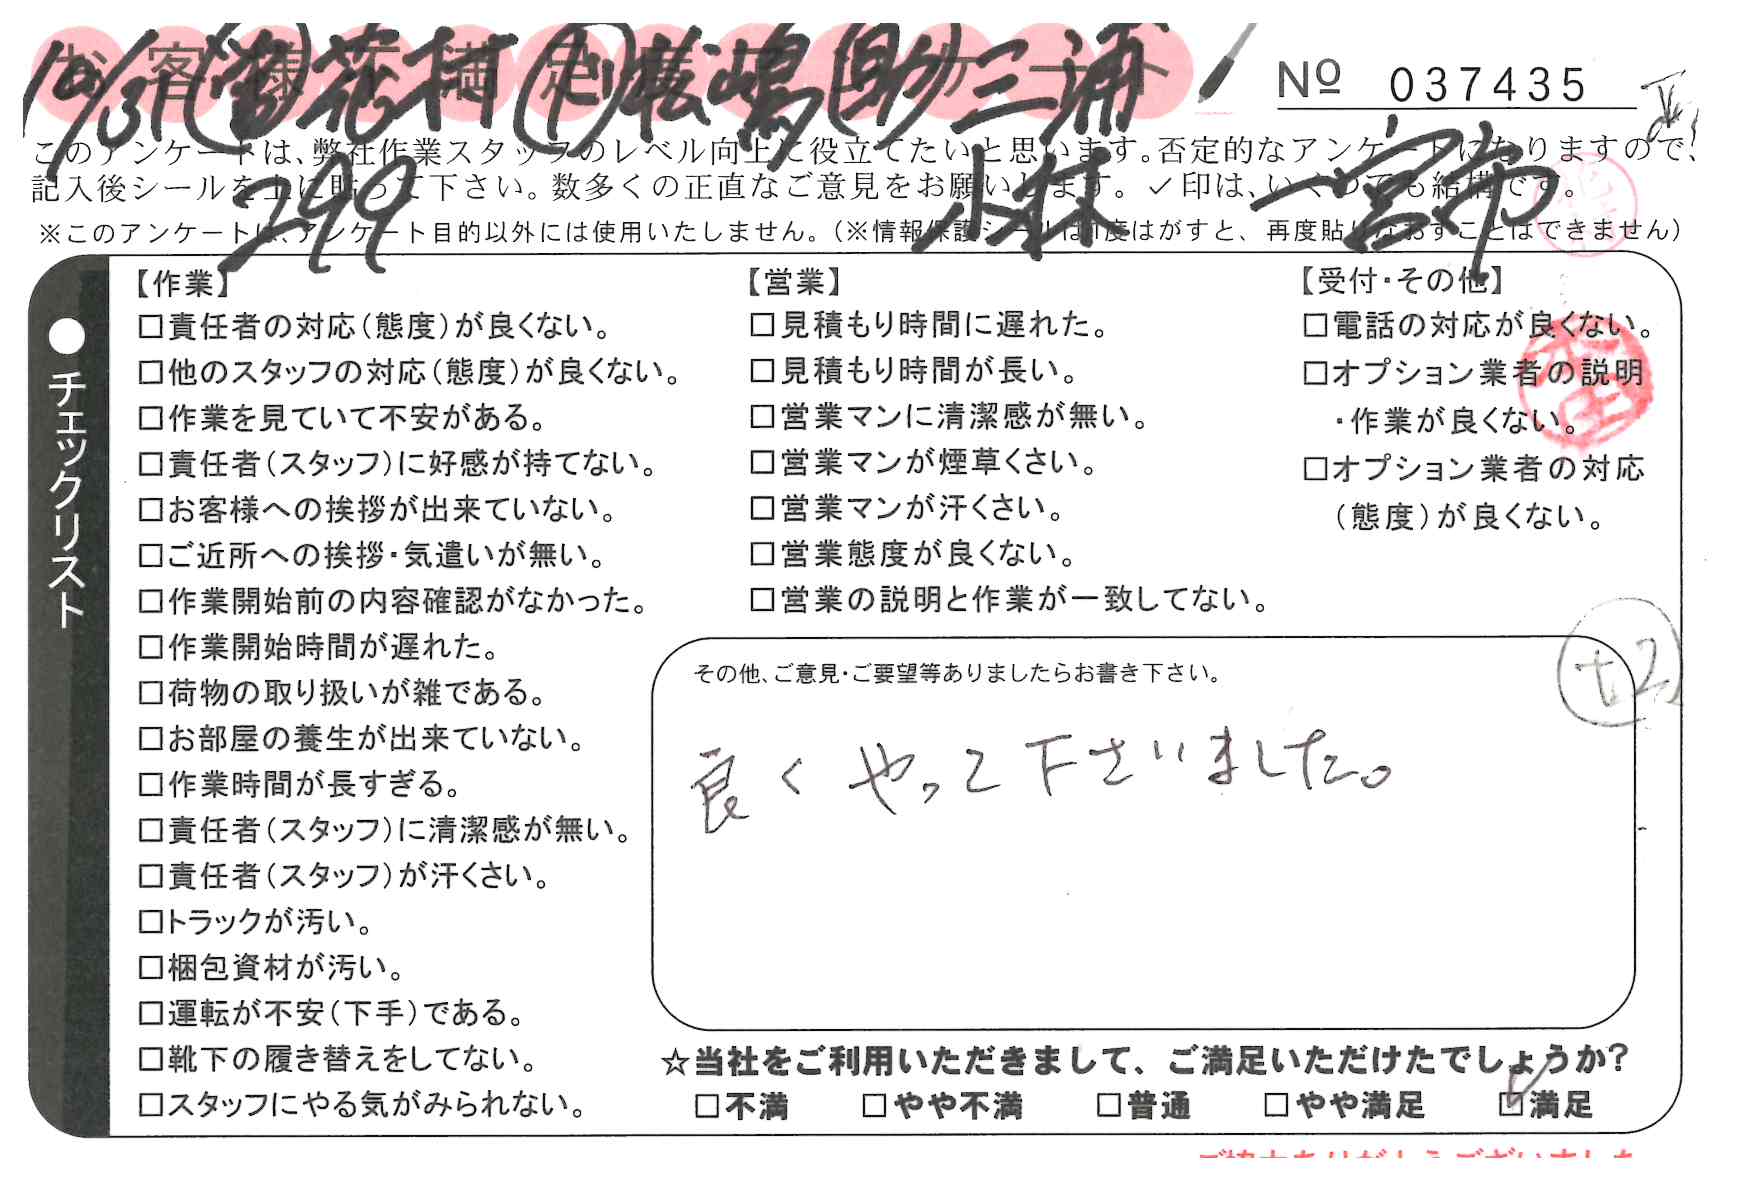 お客様不満足度アンケート
10/31 花村 松嶋 (助)三浦
Nº 037435
このアンケートは、弊社作業スタッフのレベル向上に役立てたいと思います。否定的なアンケートになりますので、
記入後シールを上に貼って下さい。数多くの正直なご意見をお願いします。✓印は、いくつでも結構です。
299 小林 一宮市
※このアンケートは、アンケート目的以外には使用いたしません。(※情報保護シールは1度はがすと、再度貼りなおすことはできません)
●チェックリスト
【作業】
□責任者の対応(態度)が良くない。
□他のスタッフの対応(態度)が良くない。
□作業を見ていて不安がある。
□責任者(スタッフ)に好感が持てない。
□お客様への挨拶が出来ていない。
□ご近所への挨拶・気遣いが無い。
□作業開始前の内容確認がなかった。
□作業開始時間が遅れた。
□荷物の取り扱いが雑である。
□お部屋の養生が出来ていない。
□作業時間が長すぎる。
□責任者(スタッフ)に清潔感が無い。
□責任者(スタッフ)が汗くさい。
□トラックが汚い。
□梱包資材が汚い。
□運転が不安(下手)である。
□靴下の履き替えをしてない。
□スタッフにやる気がみられない。
【営業】
□見積もり時間に遅れた。
□見積もり時間が長い。
□営業マンに清潔感が無い。
□営業マンが煙草くさい。
□営業マンが汗くさい。
□営業態度が良くない。
□営業の説明と作業が一致してない。
【受付・その他】
□電話の対応が良くない。
□オプション業者の説明
・作業が良くない。
□オプション業者の対応
(態度)が良くない。
+2
その他、ご意見・ご要望等ありましたらお書き下さい。
良くやって下さいました。
☆当社をご利用いただきまして、ご満足いただけたでしょうか?
□不満 □やや不満 □普通 □やや満足 ☑満足
ご協力ありがとうございました